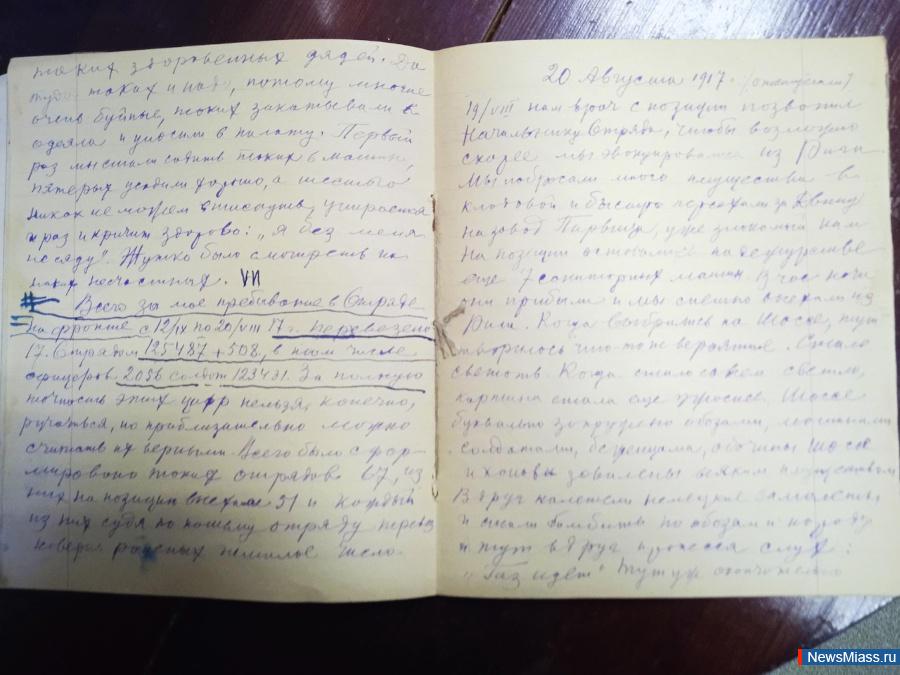 таких здоровенных дядей. Да
туда таких и надо, потому многие
очень буйные, таких закатывали в
одеяла и уносили в палату. Первый
раз мы стали садить таких в машины,
пятерых усадили хорошо, а шестого
никак не можем втиснуть, упирается
и раз и кричит здорово: "Я без меня
не сяду". Жутко было смотреть на
таких несчастных. VII
Всего за мое пребывание в Отряде
на фронте с 12/IX по 20/VIII 17 г. перевезено
17. Отрядом 125487 + 508, в том числе
офицеров 2056 солдат 123431. За полную
точность этих цифр нельзя, конечно,
ручаться, но приблизительно можно
считать их верными. Всего было сфор-
мировано таких отрядов 67, из
них на позиции выехали 51 и каждый
из них судя по нашему отряду перевез
раненых число
20 Августа 1917.
19/VIII нам врач с позиции позвонил
Начальнику Отряда, чтобы возможно
скорее мы эвакуировались из Риги
Мы побросали много имущества в
кладовой и быстро переехали за Двину
на завод, уже знакомый нам
На позиции оставались на дежурстве
еще 7 санитарных машин. В час ночи
они прибыли и мы спешно выехали из
Риги. Когда выбрались на Шоссе, тут
творилось что-то невероятное. Стало
светать. Когда стало совсем светло,
картина стала еще. Шоссе
буквально запружено обозами,
солдатами, беженцами, обочины Шоссе
и канавы завалены всяким имуществом
Вдруг налетели немецкие самолеты,
и стали бомбить по обозам и народу
и тут вдруг пронесся слух:
"Газ идет" Тут уж окончательно
NewsMiass.ru